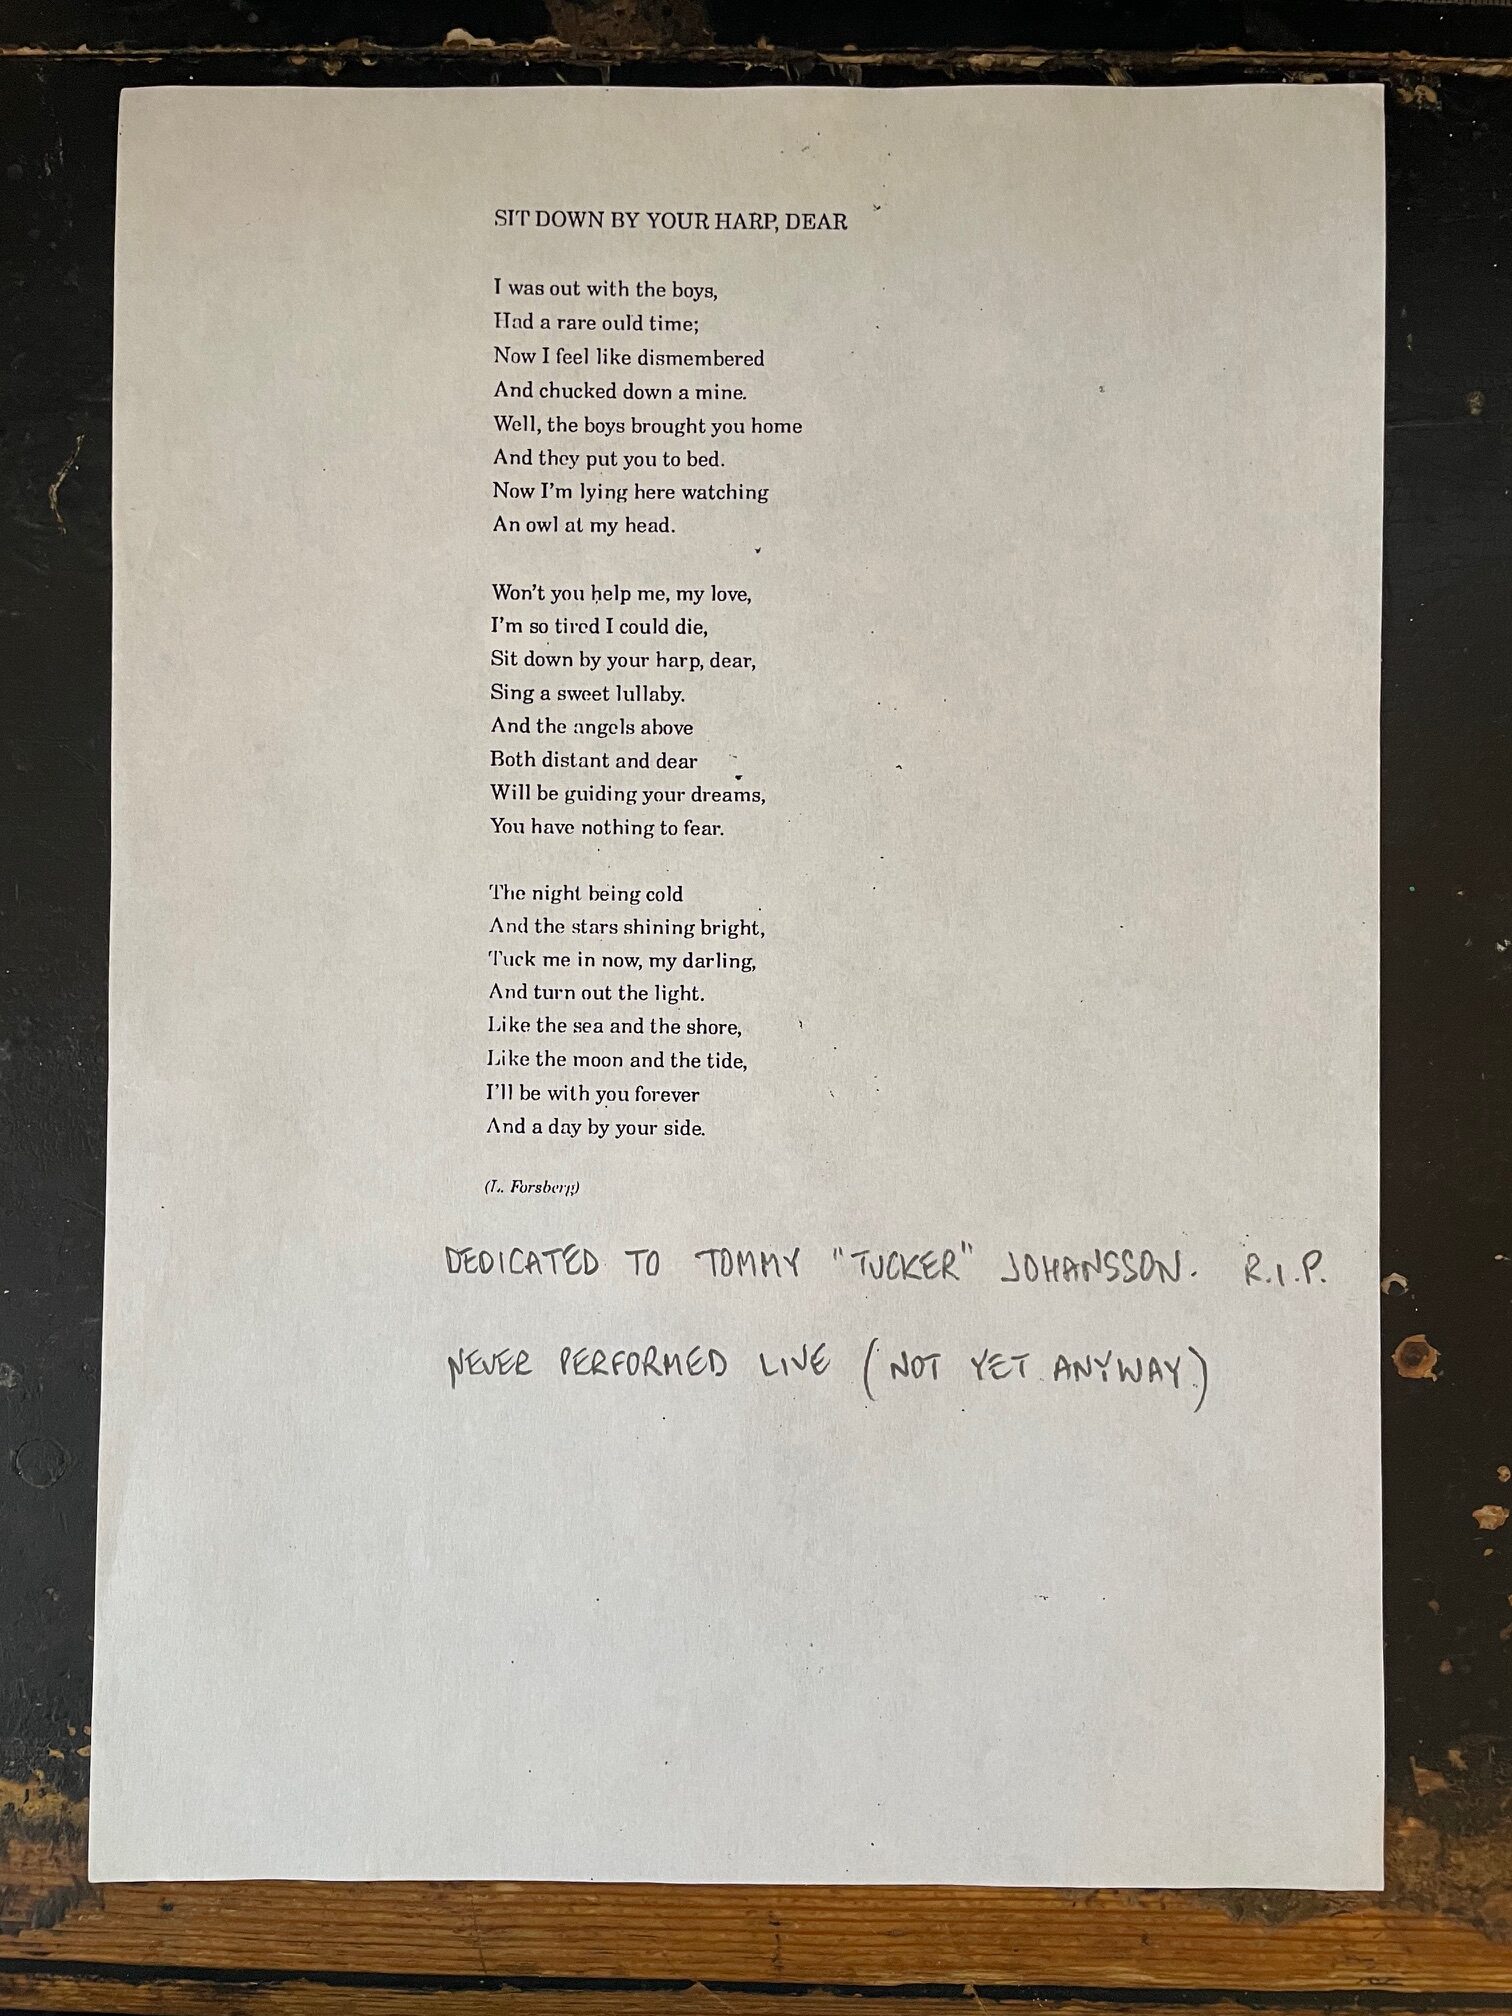 SIT DOWN BY YOUR HARP, DEAR
I was out with the boys,
Had a rare ould time;
Now I feel like dismembered
And chucked down a mine.
Well, the boys brought you home
And they put you to bed.
Now I'm lying here watching
An owl at my head.
Won't you help me, my love,
I'm so tired I could die,
Sit down by your harp, dear,
Sing a sweet lullaby.
And the angels above
Both distant and dear
Will be guiding your dreams,
You have nothing to fear.
The night being cold
And the stars shining bright,
Tuck me in now, my darling,
And turn out the light.
Like the sea and the shore,
Like the moon and the tide,
I'll be with you forever
And a day by your side.
(L. Forsberg)
DEDICATED TO TOMMY "TUCKER" JOHANSSON. R.I.P.
NEVER PERFORMED LIVE (NOT YET ANYWAY)